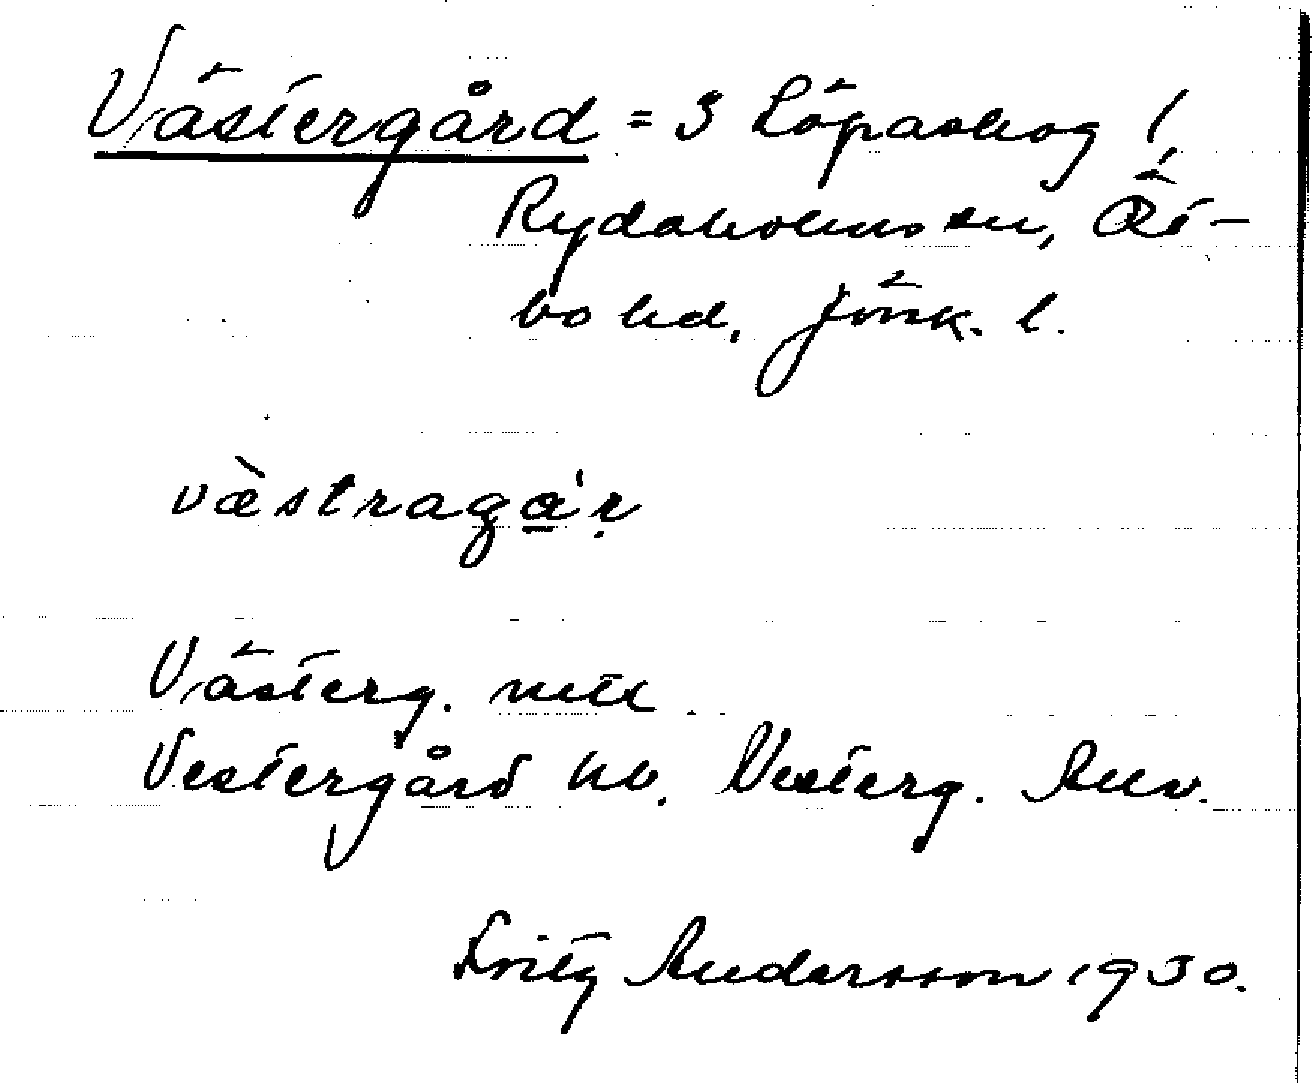 Västergård = 3 Löpaskog 1,
Rydaholms sn, Öst-
bo hd, Jönk. l.
væ̀straga̠'ṛ
Västerg. mtl
Vestergård kb. Vesterg. Anv.
Fritz Andersson 1930.